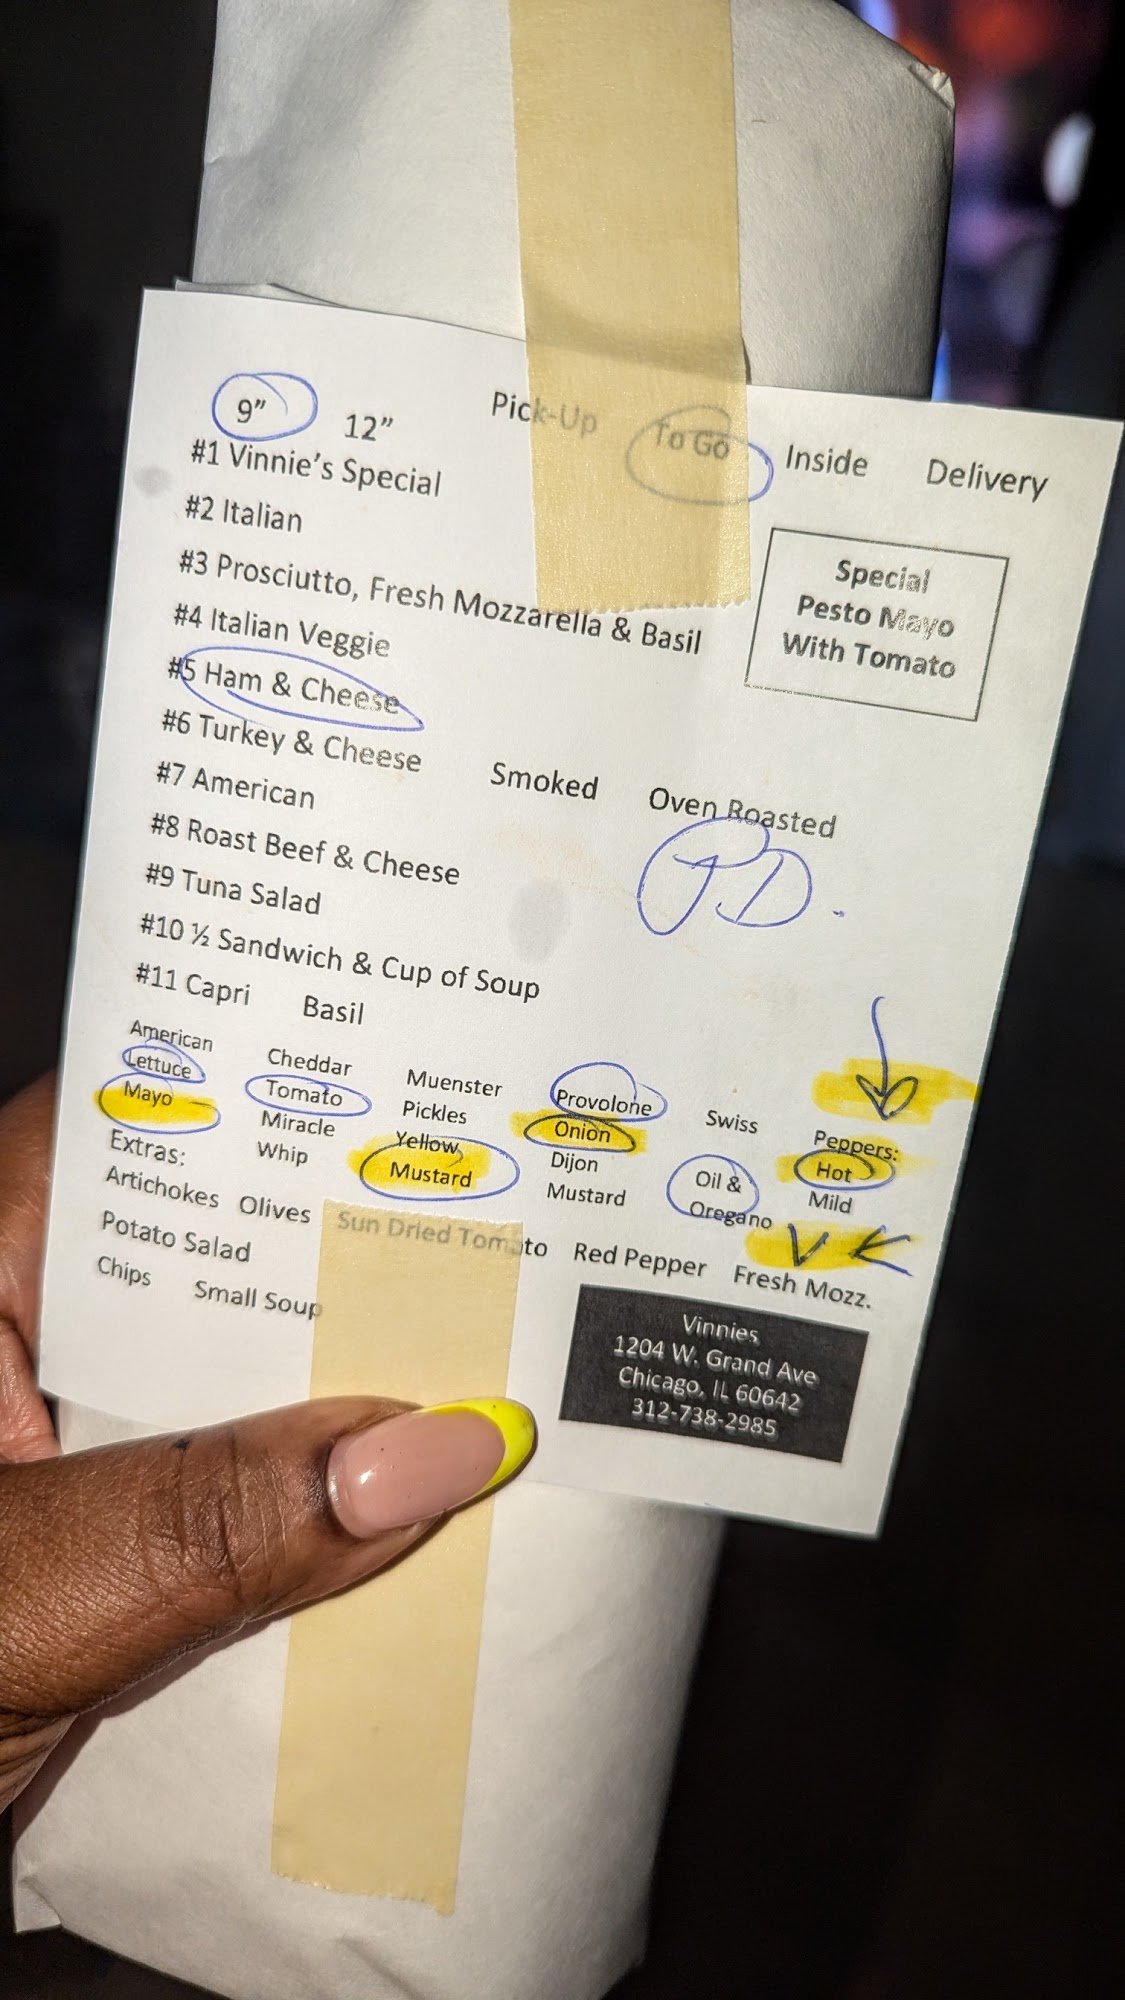 9” 12” Pick-Up To Go Inside Delivery
#1 Vinnie’s Special
#2 Italian
#3 Prosciutto, Fresh Mozzarella & Basil
#4 Italian Veggie
#5 Ham & Cheese
Special
Pesto Mayo
With Tomato
#6 Turkey & Cheese Smoked Oven Roasted
#7 American
#8 Roast Beef & Cheese
PD.
#9 Tuna Salad
#10 ½ Sandwich & Cup of Soup
#11 Capri Basil
American Cheddar Muenster Provolone Swiss Peppers:
Lettuce Tomato Pickles Onion Oil & Oregano Hot
Mayo Miracle Whip Yellow Mustard Dijon Mustard Mild
Extras:
Artichokes Olives Sun Dried Tomato Red Pepper Fresh Mozz.
Potato Salad
Chips Small Soup
Vinnies
1204 W. Grand Ave
Chicago, IL 60642
312-738-2985